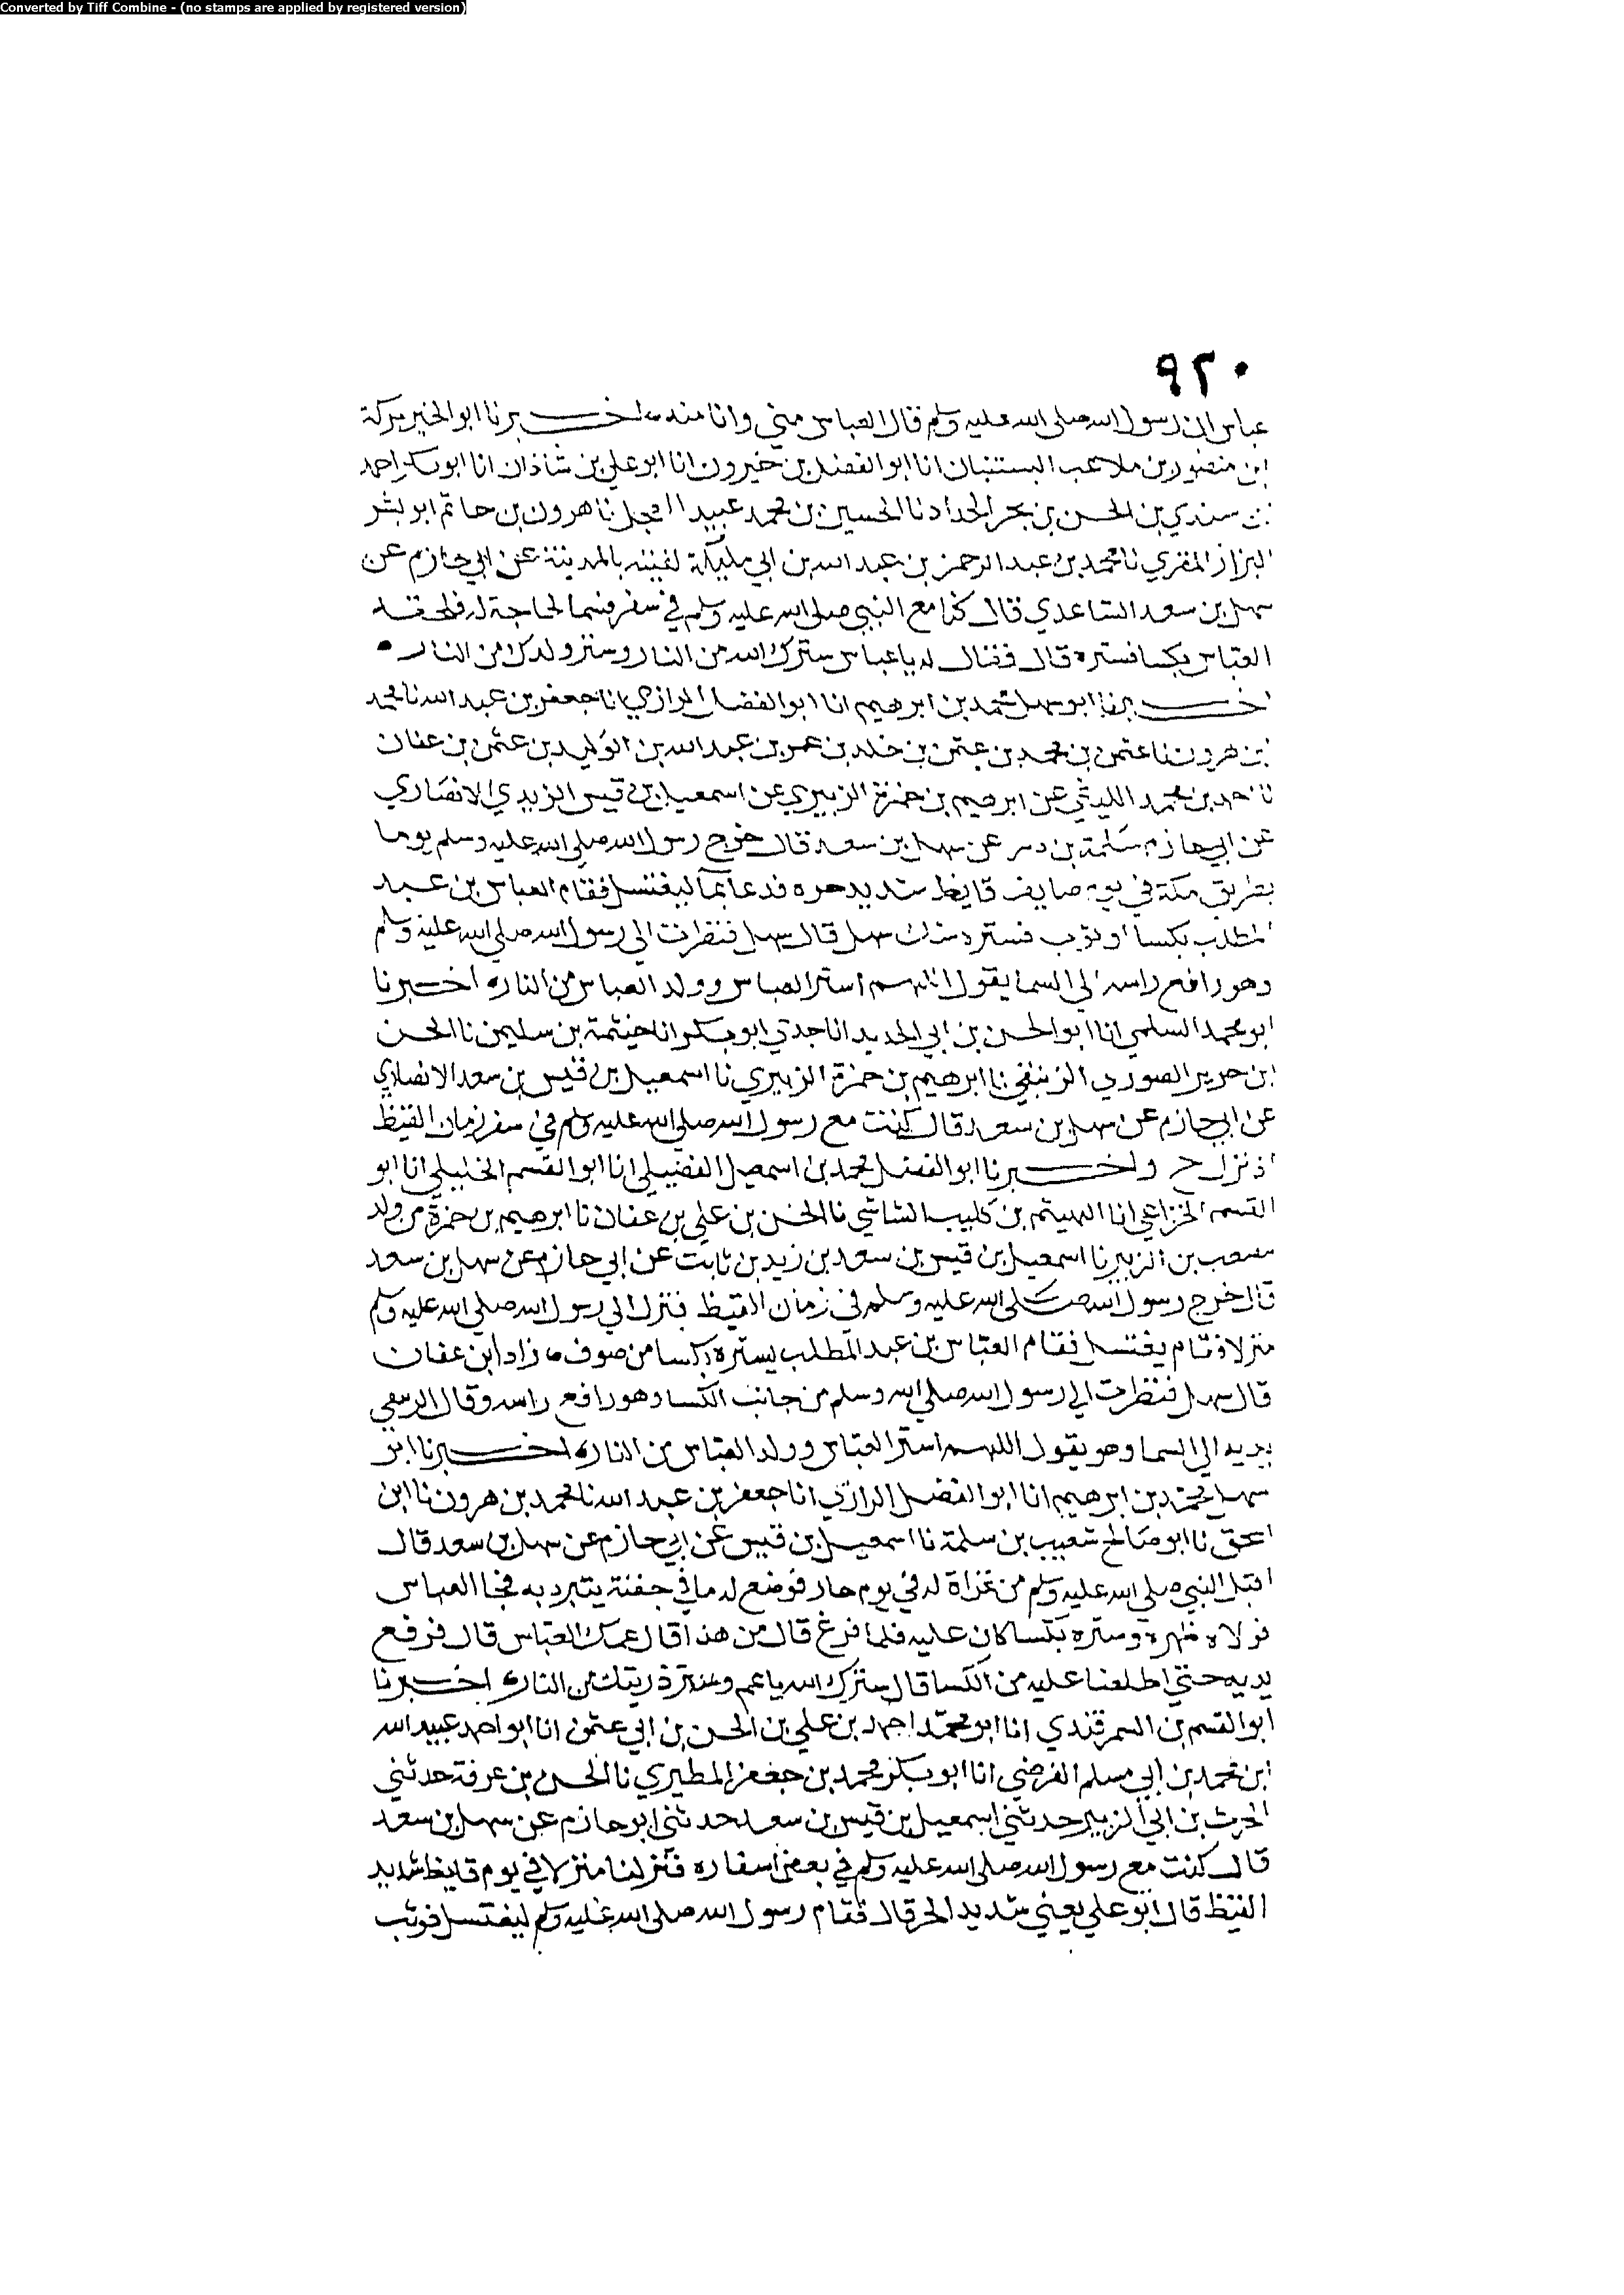 Converted by Tiff Combine - (no stamps are applied by registered version)
٩٢٠
عباس ان رسول الله صلى الله عليه وسلم قال العباس مني وانا منه اخبرنا ابو الخير بركة
ابن منصور بن ملاعب البستنبان انا ابو الفضل بن خيرون انا ابو علي بن شاذان انا ابو بكر احمد
بن سندي بن الحسن بن بحر الحداد نا الحسين بن محمد عبيد العجل نا هرون بن حاتم ابو بشر
البزاز المقري نا محمد بن عبد الرحمن بن عبد الله بن ابي مليكة لقيته بالمدينة عن ابي حازم عن
سهل بن سعد الساعدي قال كنا مع النبي صلى الله عليه وسلم في سفر لحاجة له فلحقه
العباس بكسا فستره قال فقال له يا عباس سترك الله من النار وستر ولدك من النار
اخبرنا ابو سهل محمد بن ابرهيم انا ابو الفضل الرازي انا جعفر بن عبد الله نا محمد
بن هرون نا عثمن بن محمد بن عثمن بن خلد بن عمر بن عبد الله بن الوليد بن عثمن بن عفان
نا احمد بن محمد الليثي عن ابرهيم بن حمزة الزبيري عن اسمعيل بن قيس الزيدي الانصاري
عن ابي حازم سلمة بن دينر عن سهل بن سعد قال خرج رسول الله صلى الله عليه وسلم يوما
بطريق مكة في يوم صايف قايظ شديد حره فدعا بما ليغتسل فقام العباس بن عبد
المطلب بكسا او ثوب فستره شك سهل قال سهل فنظرت الى رسول الله صلى الله عليه وسلم
وهو رافع راسه الى السما يقول اللهم استر العباس وولد العباس من النار اخبرنا
ابو محمد السلمي انا ابو الحسن بن ابي الحديد انا جدي ابو بكر انا خيثمة بن سليمن نا الحسن
ابن جرير الصوري الزنبقي نا ابرهيم بن حمزة الزبيري نا اسمعيل بن قيس بن سعد الانصاري
عن ابي حازم عن سهل بن سعد قال كنت مع رسول الله صلى الله عليه وسلم في سفر زمان القيظ
اذ نزل ح واخبرنا ابو الفضل محمد بن اسمعيل الفضيلي انا ابو القسم الخليلي انا ابو
القسم الخزاعي انا الهيثم بن كليب الشاشي نا الحسن بن علي بن عفان نا ابرهيم بن حمزة من ولد
مصعب بن الزبير نا اسمعيل بن قيس بن سعد بن زيد بن ثابت عن ابي حازم عن سهل بن سعد
قال خرج رسول الله صلى الله عليه وسلم في زمان القيظ فنزل الي رسول الله صلى الله عليه وسلم
منزلا وقام يغتسل فقام العباس بن عبد المطلب يستره بكسا من صوف زاد ابن عفان
قال سهل فنظرت الي رسول الله صلى الله وسلم من جانب الكسا وهو رافع راسه وقال
يديه الي السما وهو يقول اللهم استر العباس وولد العباس من النار اخبرنا ابو
سهل محمد بن ابرهيم انا ابو الفضل الرازي انا جعفر بن عبد الله نا محمد بن هرون نا ابن
اسحق نا ابو صالح شعيب بن سلمة نا اسمعيل بن قيس عن ابي حازم عن سهل بن سعد قال
اقبل النبي صلى الله عليه وسلم من غزاة له في يوم حار فوضع له ما في جفنة يتبرد به فجا العباس
فولاه ظهره وستره بكسا كان عليه فلما فرغ قال من هذا قال عمك العباس قال فرفع
يديه حتي اطلعنا عليه من الكسا قال سترك الله يا عم وستر ذريتك من النار اخبرنا
ابو القسم بن السمرقندي انا ابو محمد احمد بن علي بن الحسن بن ابي عثمن انا ابو احمد عبيد الله
ابن محمد بن ابي مسلم الفرضي انا ابو بكر محمد بن جعفر المطيري نا الحسن بن عرفة حدثني
الحرث بن ابي الزبير حدثني اسمعيل بن قيس بن سعد حدثني ابو حازم عن سهل بن سعد
قال كنت مع رسول الله صلى الله عليه وسلم في بعض اسفاره فنزلنا منزلا في يوم قايظ شديد
القيظ قال ابو علي يعني شديد الحر قال فقام رسول الله صلى الله عليه وسلم ليغتسل فوثب